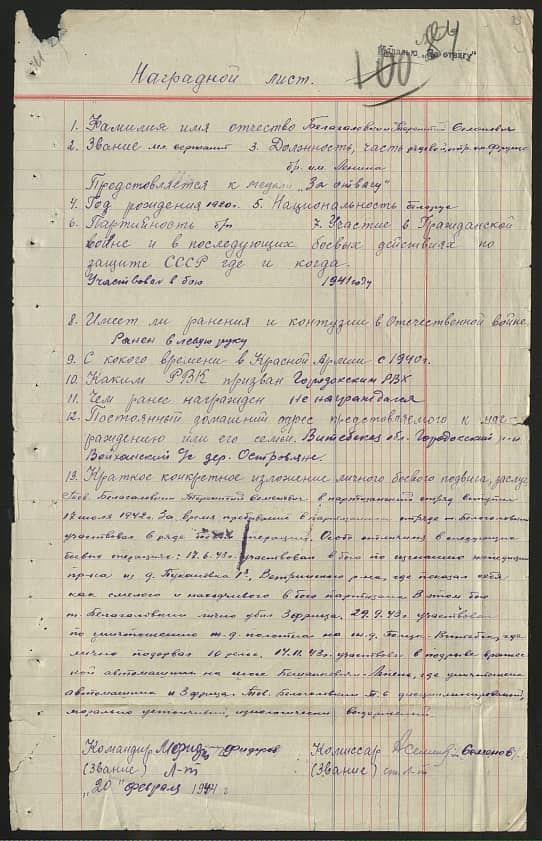 Медалью "За отвагу"
Наградной лист.
1. Фамилия имя отчество Белагаловкин Терентий Семенович
2. Звание мл. сержант 3. Должность, часть рядовой, отр. им. Фрунзе
бр. им. Ленина
Представляется к медали "За отвагу"
4. Год рождения 1920г. 5. Национальность белорус
6. Партийность б/п 7. Участие в Гражданской
войне и в последующих боевых действиях по
защите СССР где и когда.
Участвовал в бою 1941 году
8. Имеет ли ранения и контузии в Отечественной войне.
Ранен в левую руку
9. С какого времени в Красной Армии с 1940г.
10. Каким РВК призван Городокским РВК
11. Чем ранее награжден не награждался
12. Постоянный домашний адрес представляемого к наг-
раждению или его семьи. Витебская обл. Городокский р-н
Войханский с/с дер. Островляне.
13. Краткое конкретное изложение личного боевого подвига, заслуг
Тов. Терентий Семенович в партизанский отряд вступил
17 июля 1942г. За время пребывания в партизанском отряде т.
участвовал в ряде боевых операций. Особо отличился в следующих
боевых операциях: 17.6.43г. участвовал в бою по изгнанию экспедиции
пр-ка из д. Ветринского р-на, где показал себя
как смелого и находчивого в бою партизана. В этом бою
т. лично убил 3 фрица. 29.9.43г. участвовал
по уничтожению ж.д. полотна на ж.д. Полоцк-Витебск, где
лично подорвал 10 рельс. 17.11.43г. участвовал в подрыве вражес-
кой автомашины на шоссе Бешенковичи-Лепель, где уничтожена
автомашина и 3 фрица. Тов. дисциплинированный,
морально устойчивый, идеологически выдержанный.
Командир Фидоров Комиссар Семенов
(Звание) Л-т (Звание) ст. Л-т
"20" февраля 1944 г